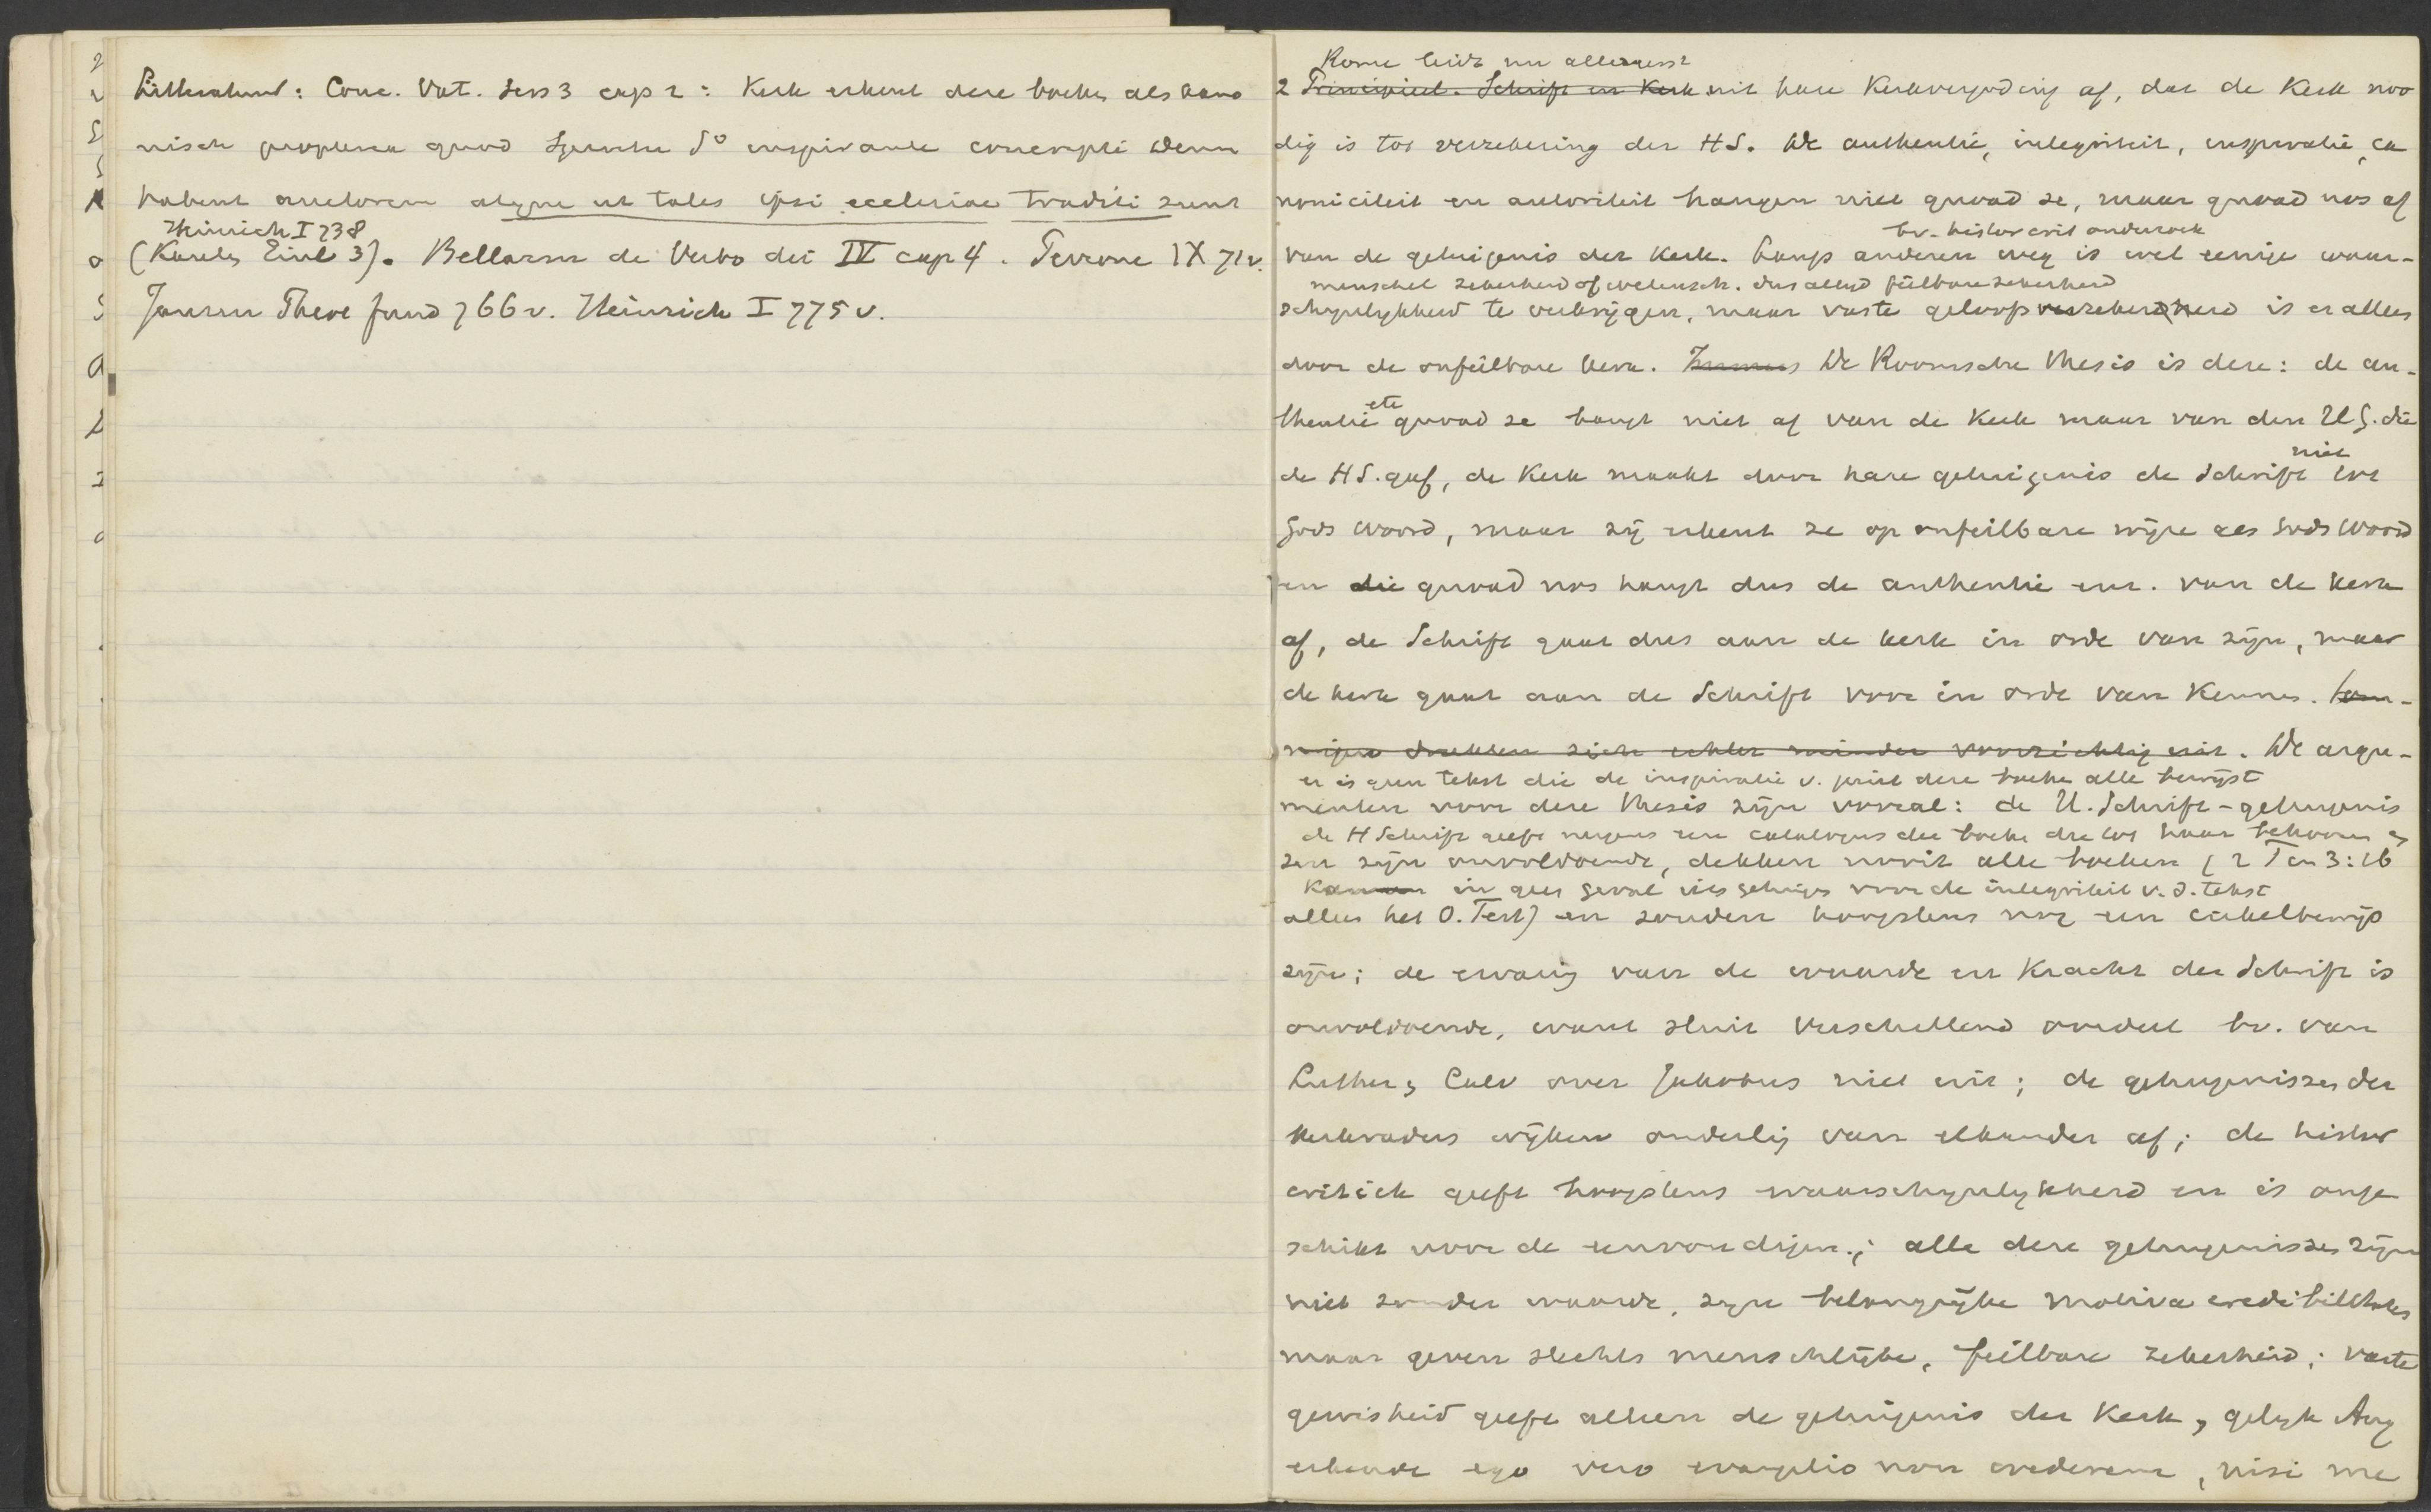 Litteratuur: Conc. Vat. sess 3 cap 2: Kerk erkent deze boeken als kano
nisch propterea quod Spiritu So inspirante conscripti Deum
habent auctorem atque ut tales ipsi ecclesiae traditi sunt
Heinrich I 738
(Kaulen Einl 3). Bellarm de Verbo dei IV cap 4. Perrone IX 71v.
Jansen Theol fund 766v. Heinrich I 775v.
Rome leidt nu allereerst
2 Principieel. Schrift en Kerk uit hare Kerkvergoding af, dat de Kerk noo
dig is tot verzekering der HS. De authentie, integriteit, inspiratie, ca
noniciteit en autoriteit hangen niet quoad se, maar quoad nos af
bv. histor crit onderzoek
van de getuigenis der Kerk. Langs anderen weg is wel eenige waar-
menschel zekerheid of wetensch. dus altijd feilbare zekerheid
schynlykheid te verkrijgen, maar vaste geloofszekerheid is er alleen
door de onfeilbare Kerk. De Roomsche thesis is deze: de au-
thentie etc quoad se hangt niet af van de Kerk maar van den H G. die
de HS. gaf, de Kerk maakt door hare getuigenis de Schrift niet tot
Gods woord, maar zij erkent ze op onfeilbare wijze als Gods Woord
en die quoad nos hangt dus de authentie enz. van de kerk
af, de Schrift gaat dus aan de kerk in orde van zijn, maar
de kerk gaat aan de Schrift voor in orde van Kennen. Som-
migen drukken zich echter minder voorzichtig uit. De argu-
er is geen tekst die de inspiratie v. juist deze boeken alle bewijst
menten voor deze thesis zijn vooral: de H. Schrift-getuigenis
de H Schrift geeft nergens een catalogus der boeken die tot haar behooren en
sen zijn onvoldoende, dekken nooit alle boeken (2 Tim 3:16
in geen geval iets getuigen voor de integriteit v. d. tekst
alleen het O. Test) en zouden hoogstens nog een cirkelbewijs
zijn; de ervaring van de waarde en Kracht der Schrift is
onvoldoende, want sluit verschillend oordeel bv. van
Luther en Calv over Jakobus niet uit; de getuigenissen der
Kerkvaders wijken onderling van elkander af; de histor
critiek geeft hoogstens waarschynlykheid en is onge
schikt voor de eenvoudigen.; alle deze getuigenissen zijn
niet zonder waarde, zijn belangrijke motiva credibilitatis
maar geven slechts menschlijke, feilbare zekerheid; vaste
gewisheid geeft alleen de getuigenis der Kerk, gelyk Aug
erkende ego vero evangelio non crederem, nisi me